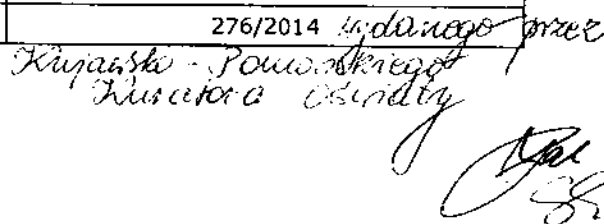 276/2014 wydanego przez
Kujawsko - Pomorskiego
Kuratora Oświaty